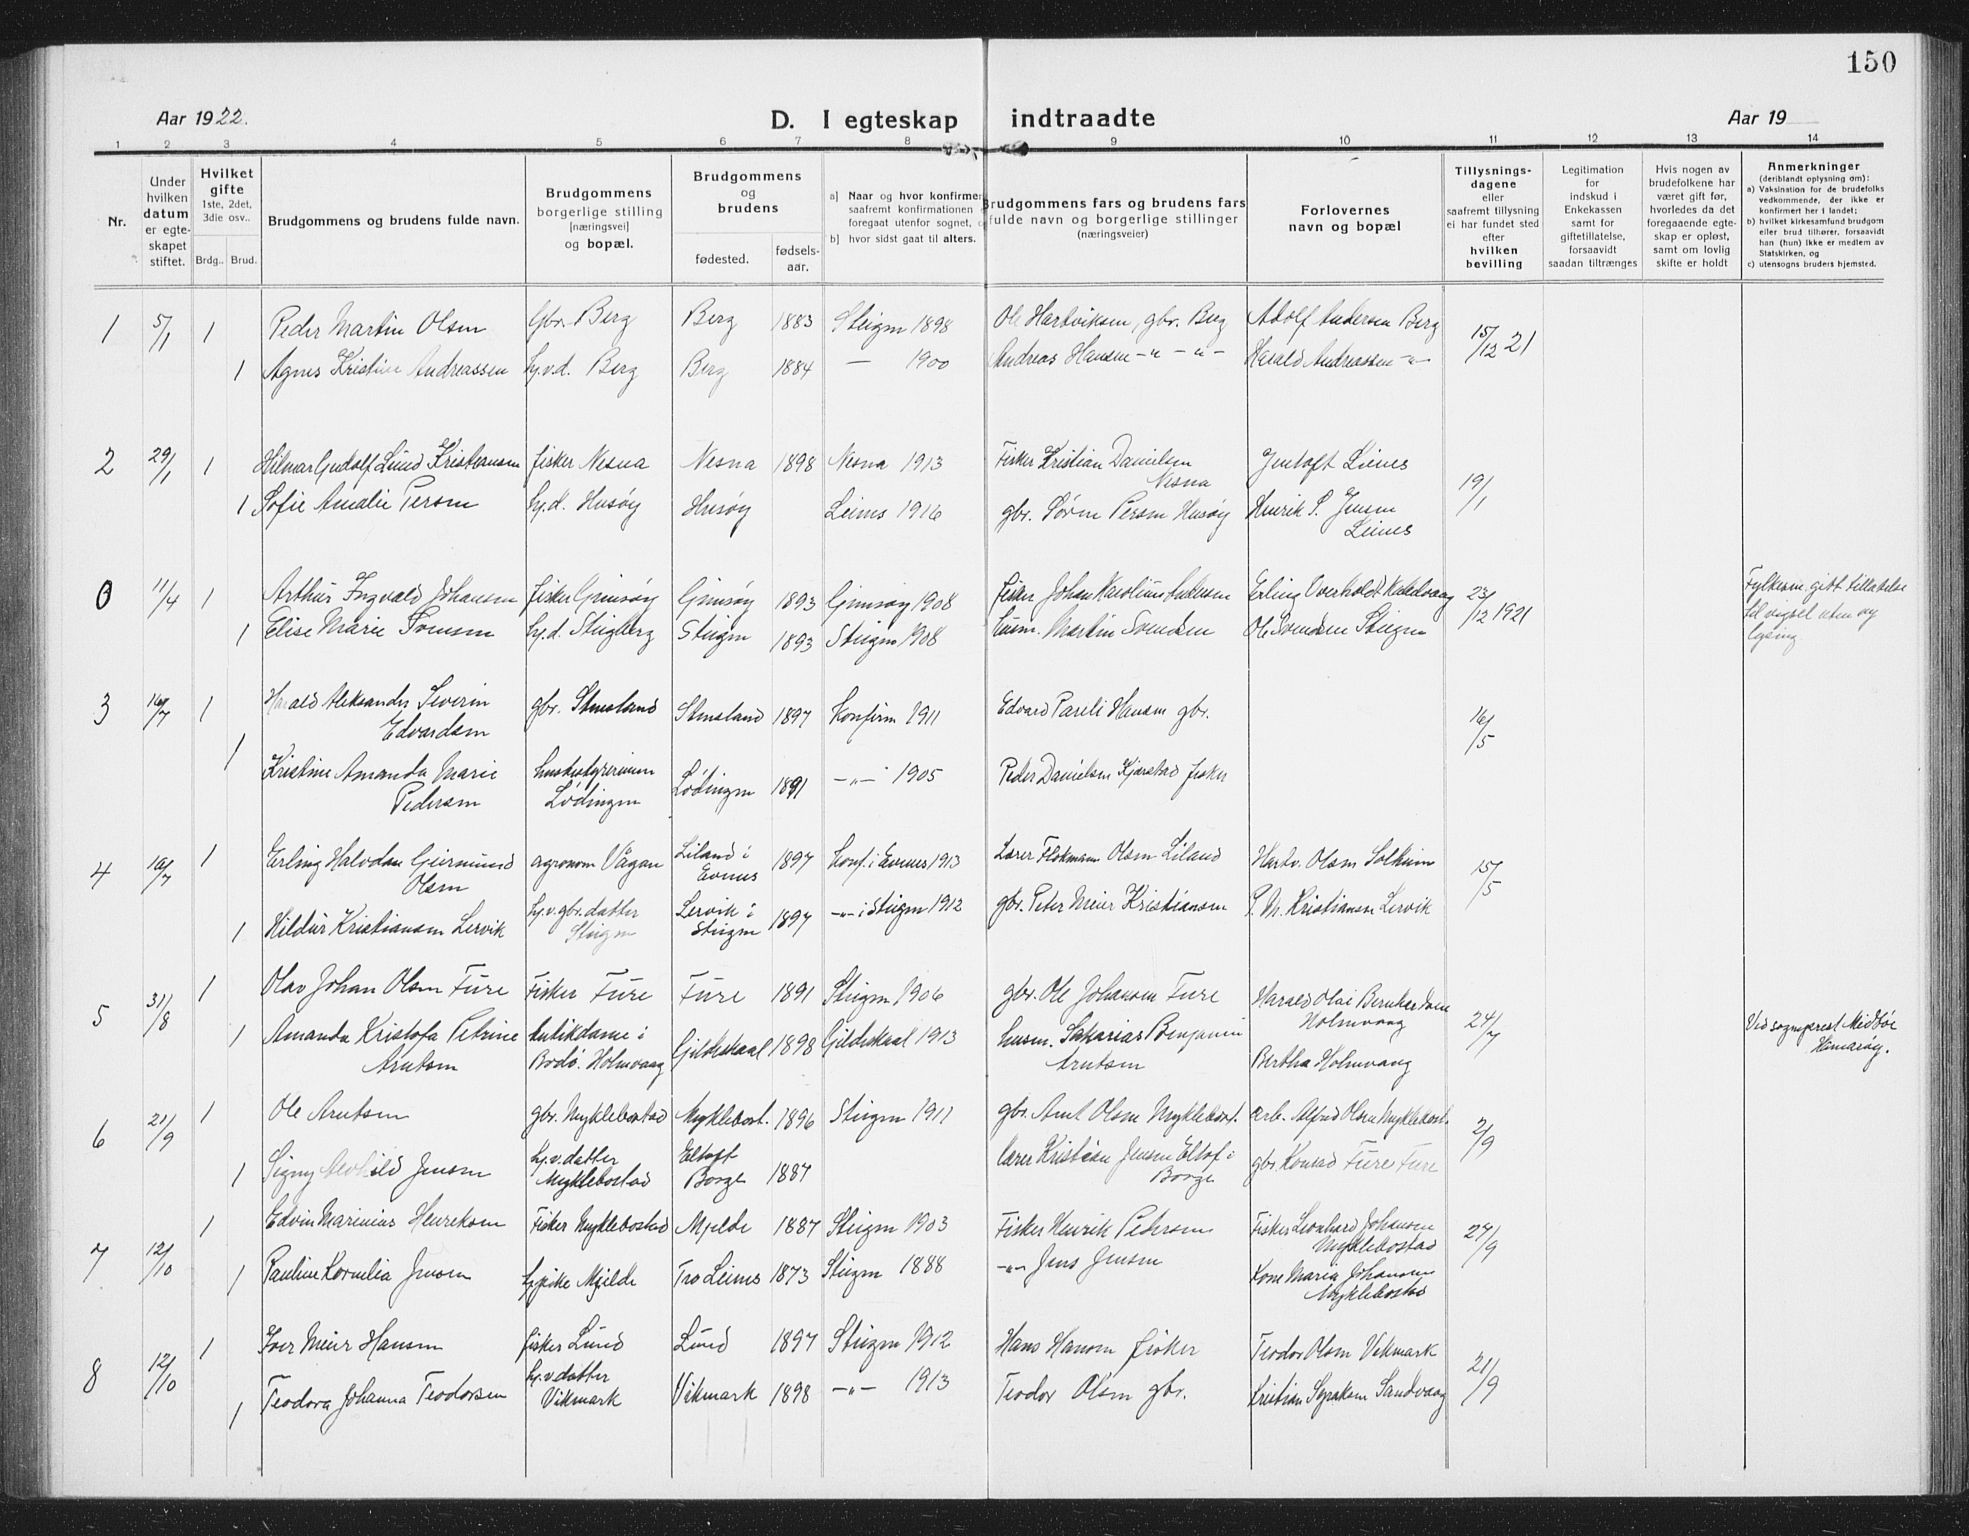 150
Aar 1922.
D. I egteskap indtraadte
Aar 19
1 2 3 4 5 6 7 8 9 10 11 12 13 14
Nr.
Under
hvilken
datum
er egte-
skapet
stiftet.
Hvilket
gifte
1ste, 2det,
3die osv..
Brdg.. Brud.
Brudgommens og brudens fulde navn.
Brudgommens
borgerlige stilling
[næringsvei]
og bopæl.
Brudgommens
og
brudens
fødested.
fødsels-
aar.
a] Naar og hvor konfirme
saafremt konfirmationen
foregaat utenfor sognet,
b] hvor sidst gaat til alters.
Brudgommens fars og brudens fars
fulde navn og borgerlige stillinger
(næringsveier)
Forlovernes
navn og bopæl
Tillysnings-
dagene
eller
saafremt tillysning
ei har fundet sted
efter
hvilken
bevilling
Legitimation
for
indskud i
Enkekassen
samt for
giftetillatelse,
forsaavidt
saadan tiltrænges
Hvis nogen av
brudefolkene har
været gift før,
hvorledes da det
foregaaende egte-
skap er opløst,
samt om lovlig
skifte er holdt
Anmerkninger
(deriblandt oplysning om):
a) Vaksination for de brudefolks
vedkommende, der ikke er
konfirmert her i landet;
b) hvilket kirkesamfund brudgom
eller brud tilhører, forsaavidt
han (hun) ikke er medlem av
Statskirken, og
c) utensogns bruders hjemsted.
1 5/1 1 Peder Martin Olsen Gbr. Berg Berg 1883 Steigen 1898 Ole Hartviksen, gbr. Berg Adolf Andersen Berg 15/12 21
1 Agnes Kristine Andreassen hj.v.d. Berg Berg 1884 — 1900 Andreas Hansen -"- -"- Harald Andreassen -"-
2 29/1 1 Hilmar Gudolf Lund Kristiansen fisker Nesna Nesna 1898 Nesna 1913 Fisker Kristian Danielsen
Nesna Jentoft Leines 19/1
1 Sofie Amalie Persen hj.d. Husøy Husøy Leines 1916 gbr. Søren Persen Husøy Henrik P. Jensen
Leines
0 11/4 1 Arthur Ingvald Johansen fisker Gimsøy Gimsøy 1893 Gimsøy 1908 fisker Johan Karolius Andersen Erling Overholdt Kaldvaag 23/12 1921 Fylkesm. gitt tillatelse
til vigsel uten ny
lysing
1 Elise Marie Svensen hj.d. Steigberg Steigen 1893 Steigen 1908 husm. Martin Svendsen Ole Svendsen Steigen
3 16/7 1 Harald Aleksander Severin
Edvardsen gbr. Stensland Stensland 1897 Konfirm 1911 Edvard Pareli Hansen gbr. 16/5
1 Kristine Amanda Marie
Pedersen husbestyrerinnen
Lødingen Lødingen 1891 -"- 1905 Peder Danielsen Kjærstad fisker
4 16/7 1 Erling Halvdan Geirmund
Olsen agronom Vågan Liland i
Evenes 1897 Konf. i Evenes 1913 Lærer Olsen Liland Hartv. Olsen Solheim 15/5
1 Hildur Kristiansen Lervik hj.v. gbr. datter
Steigen Lervik i
Steigen 1897 -"- i Steigen 1912 gbr. Peter Meier Kristiansen P. M. Kristiansen Lervik
5 31/8 1 Olav Johan Olsen Fure Fisker Fure Fure 1891 Steigen 1906 gbr. Ole Johansen Fure Harald Olai Bernhardsen
Holmvaag 24/7 Ved sogneprest Midbøe
Hamarøy.
1 Amanda Kristofa Petrine
Arntsen butikdame i
Bodø. Holmvaag Gildeskaal 1898 Gildeskaal 1913 husm. Sakarias Benjamin
Arntsen Bertha Holmvaag
6 21/9 1 Ole Arntsen gbr. Myklebostad Myklebost. 1896 Steigen 1911 gbr. Arnt Olsen Myklebost. arb. Alfred Olsen Myklebost. 2/9
1 Signy Jensen hj.v. datter
Myklebostad Eltoft
Borge 1887 lærer Kristian Jensen Eltof i
Borge gbr. Konrad Fure Fure
7 12/10 1 Edvin Marinius Henriksen Fisker Myklebostad Mjelde 1887 Steigen 1903 Fisker Henrik Pedersen Fisker Leonhard Johansen
Myklebostad 24/9
1 Pauline Kornelia Jensen Mjelde Tro Leines 1873 Steigen 1888 -"- Jens Jensen Kone Maria Johansen
Myklebostad
8 12/10 1 Iver Meier Hansen fisker Lund Lund 1897 Steigen 1912 Hans Hansen fisker Teodor Olsen Vikmark 21/9
1 Teodora Johanna Teodorsen hj.v. datter
Vikmark Vikmark 1898 -"- 1913 Teodor Olsen gbr. Kristian Sandvaag